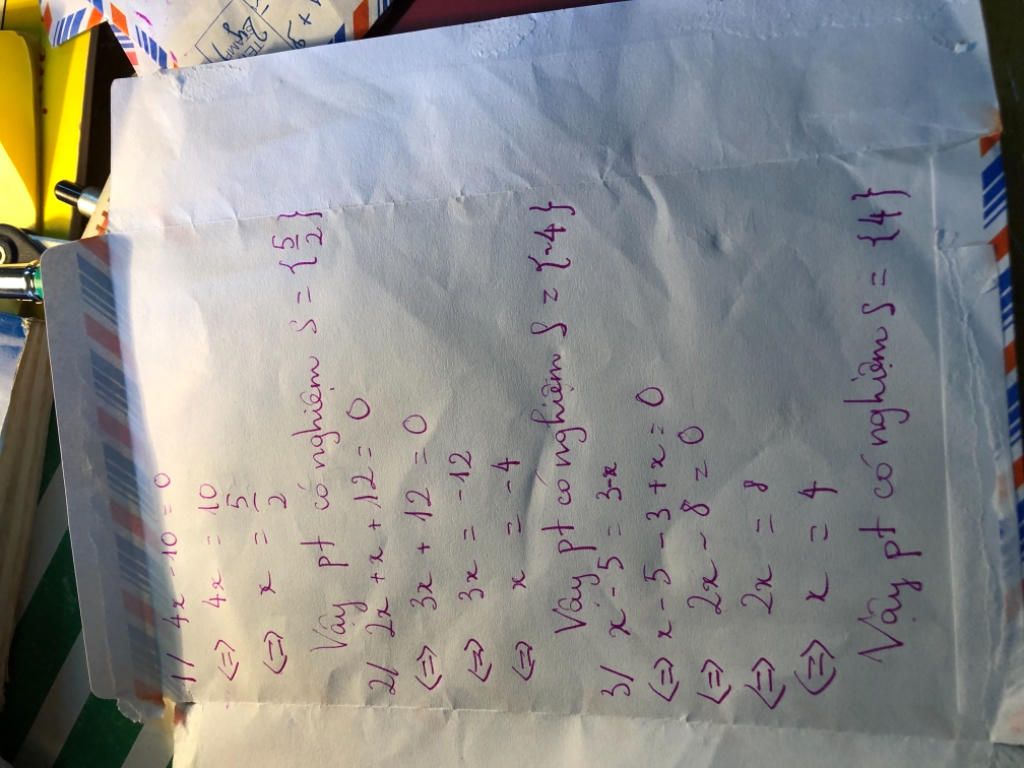 1/ 4x - 10 = 0
<=> 4x = 10
<=> x = 5/2
Vậy pt có nghiệm S = {5/2}
2/ 2x + x + 12 = 0
<=> 3x + 12 = 0
<=> 3x = -12
<=> x = -4
Vậy pt có nghiệm S = {-4}
3/ x - 5 = 3 - x
<=> x - 5 - 3 + x = 0
<=> 2x - 8 = 0
<=> 2x = 8
<=> x = 4
Vậy pt có nghiệm S = {4}